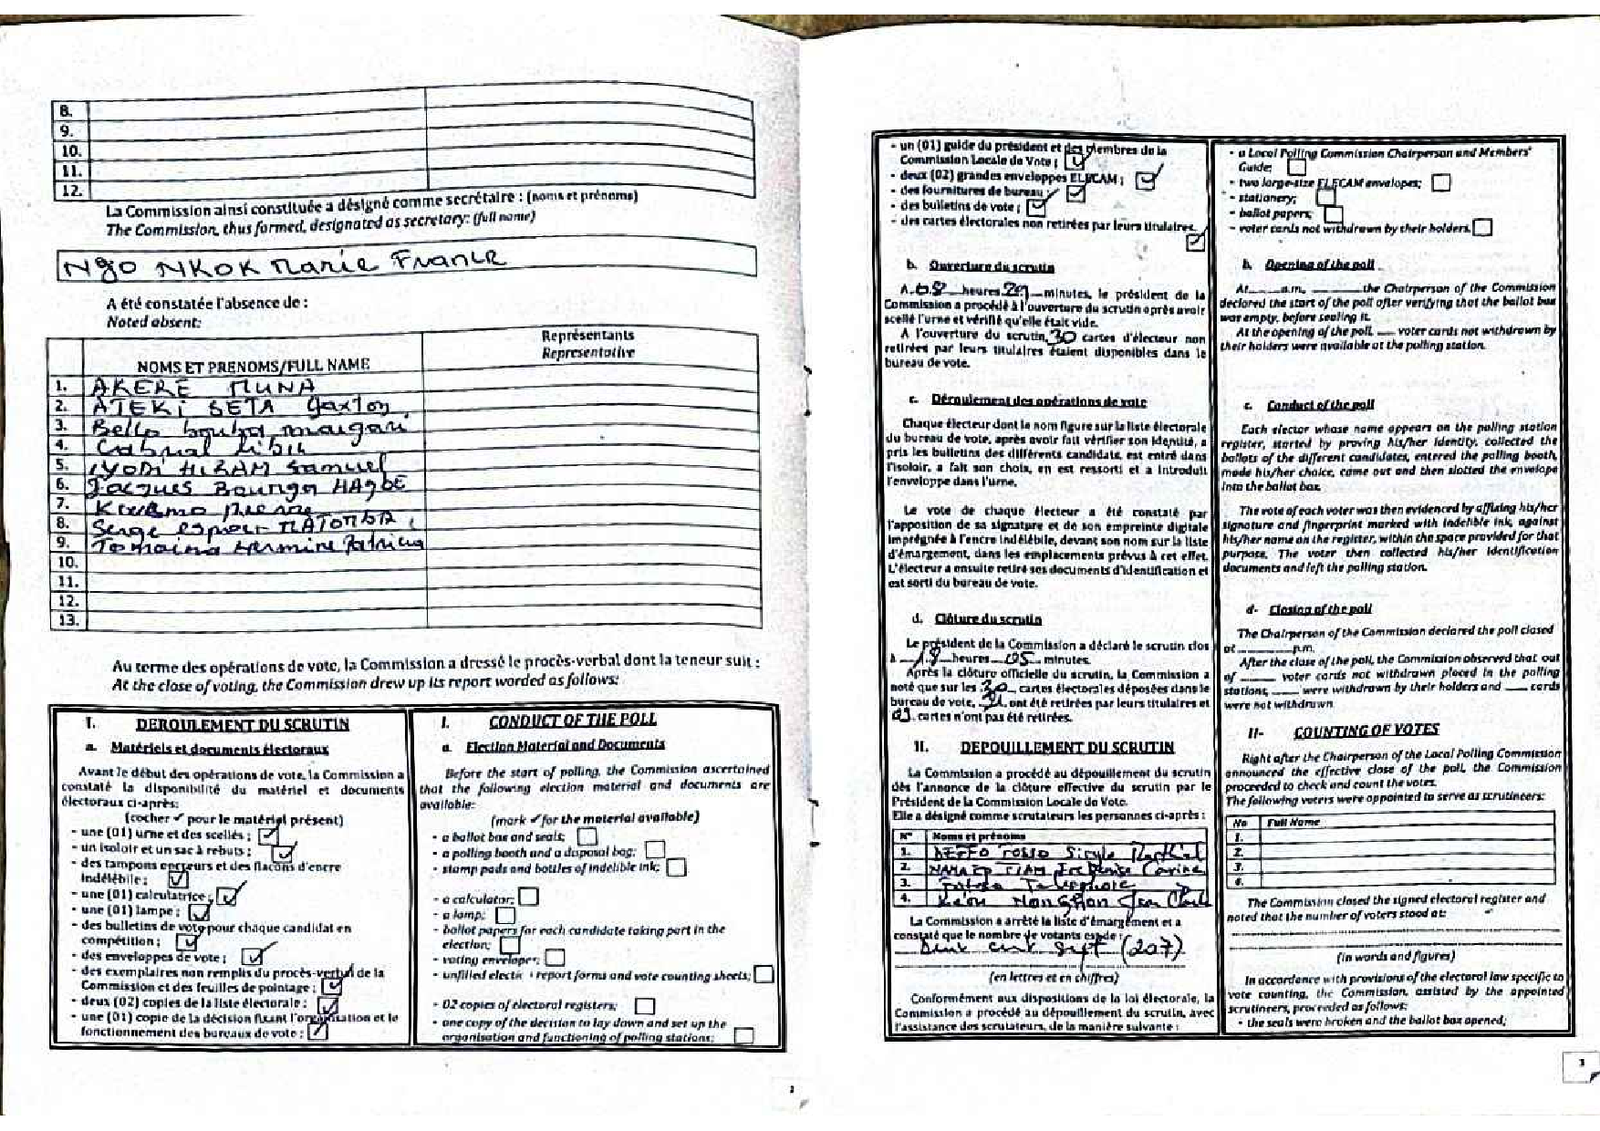 8.
9.
10.
11.
12.
La Commission ainsi constituée a désigné comme secrétaire : (noms et prénoms)
The Commission, thus formed, designated as secretary: (full name)
Ngo NKOK Marie France
A été constatée l'absence de :
Noted absent:
NOMS ET PRENOMS/FULL NAME
Représentants
Representative
1. AKERE MUNA
2. ATEKI SETA Gaxton
3. Bello bouba maigari
4. Cabral Libii
5. IYODI HIRAM Samuel
6. Jacques Bounga HAGBE
7. Kwemo Pierre
8. Serge Espoir MATOMBA
9. Tomaino Hermine Patricia
10.
11.
12.
13.
Au terme des opérations de vote, la Commission a dressé le procès-verbal dont la teneur suit :
At the close of voting, the Commission drew up its report worded as follows:
I. DEROULEMENT DU SCRUTIN
a. Matériels et documents électoraux
Avant le début des opérations de vote, la Commission a
constaté la disponibilité du matériel et documents
électoraux ci-après:
(cocher ✓ pour le matériel présent)
- une (01) urne et des scellés ; ☑
- un isoloir et un sac à rebuts ; ☑
- des tampons encreurs et des flacons d'encre
indélébile ; ☑
- une (01) calculatrice ; ☑
- une (01) lampe ; ☑
- des bulletins de vote pour chaque candidat en
compétition ; ☑
- des enveloppes de vote ; ☑
- des exemplaires non remplis du procès-verbal de la
Commission et des feuilles de pointage ; ☑
- deux (02) copies de la liste électorale ; ☑
- une (01) copie de la décision fixant l'organisation et le
fonctionnement des bureaux de vote ; ☑
I. CONDUCT OF THE POLL
a. Election Material and Documents
Before the start of polling, the Commission ascertained
that the following election material and documents are
available:
(mark ✓ for the material available)
- a ballot box and seals; ☐
- a polling booth and a disposal bag; ☐
- stamp pads and bottles of indelible ink; ☐
- a calculator; ☐
- a lamp; ☐
- ballot papers for each candidate taking part in the
election; ☐
- voting envelopes; ☐
- unfilled election report forms and vote counting sheets; ☐
- 02 copies of electoral registers; ☐
- one copy of the decision to lay down and set up the
organisation and functioning of polling stations; ☐
- un (01) guide du président et des membres de la
Commission Locale de Vote ; ☑
- deux (02) grandes enveloppes ELECAM ; ☑
- des fournitures de bureau ; ☑
- des bulletins de vote ; ☑
- des cartes électorales non retirées par leurs titulaires. ☑
b. Ouverture du scrutin
A 08 heures 29 minutes, le président de la
Commission a procédé à l'ouverture du scrutin après avoir
scellé l'urne et vérifié qu'elle était vide.
A l'ouverture du scrutin, 30 cartes d'électeur non
retirées par leurs titulaires étaient disponibles dans le
bureau de vote.
c. Déroulement des opérations de vote
Chaque électeur dont le nom figure sur la liste électorale
du bureau de vote, après avoir fait vérifier son identité, a
pris les bulletins des différents candidats, est entré dans
l'isoloir, a fait son choix, en est ressorti et a introduit
l'enveloppe dans l'urne.
Le vote de chaque électeur a été constaté par
l'apposition de sa signature et de son empreinte digitale
imprégnée à l'encre indélébile, devant son nom sur la liste
d'émargement, dans les emplacements prévus à cet effet.
L'électeur a ensuite retiré ses documents d'identification et
est sorti du bureau de vote.
d. Clôture du scrutin
Le président de la Commission a déclaré le scrutin clos
à 18 heures 05 minutes.
Après la clôture officielle du scrutin, la Commission a
noté que sur les 30 cartes électorales déposées dans le
bureau de vote, ont été retirées par leurs titulaires et
cartes n'ont pas été retirées.
II. DEPOUILLEMENT DU SCRUTIN
La Commission a procédé au dépouillement du scrutin
dès l'annonce de la clôture effective du scrutin par le
Président de la Commission Locale de Vote.
Elle a désigné comme scrutateurs les personnes ci-après :
N° Noms et prénoms
1.
2.
3.
4.
La Commission a arrêté la liste d'émargement et a
constaté que le nombre de votants est de :
Deux cent Sept (207)
(en lettres et en chiffres)
Conformément aux dispositions de la loi électorale, la
Commission a procédé au dépouillement du scrutin, avec
l'assistance des scrutateurs, de la manière suivante :
- a Local Polling Commission Chairperson and Members'
Guide; ☐
- two large-size ELECAM envelopes; ☐
- stationery; ☐
- ballot papers; ☐
- voter cards not withdrawn by their holders. ☐
b. Opening of the poll
At ____a.m. ________the Chairperson of the Commission
declared the start of the poll after verifying that the ballot box
was empty, before sealing it.
At the opening of the poll, ___ voter cards not withdrawn by
their holders were available at the polling station.
c. Conduct of the poll
Each elector whose name appears on the polling station
register, started by proving his/her identity, collected the
ballots of the different candidates, entered the polling booth,
made his/her choice, came out and then slotted the envelope
into the ballot box.
The vote of each voter was then evidenced by affixing his/her
signature and fingerprint marked with indelible ink, against
his/her name on the register, within the space provided for that
purpose. The voter then collected his/her identification
documents and left the polling station.
d- Closing of the poll
The Chairperson of the Commission declared the poll closed
at ________p.m.
After the close of the poll, the Commission observed that out
of ____ voter cards not withdrawn placed in the polling
stations, ____ were withdrawn by their holders and ____ cards
were not withdrawn
II- COUNTING OF VOTES
Right after the Chairperson of the Local Polling Commission
announced the effective close of the poll, the Commission
proceeded to check and count the votes.
The following voters were appointed to serve as scrutineers:
No Full Name
1.
2.
3.
4.
The Commission closed the signed electoral register and
noted that the number of voters stood at:
(in words and figures)
In accordance with provisions of the electoral law specific to
vote counting, the Commission, assisted by the appointed
scrutineers, proceeded as follows:
- the seals were broken and the ballot box opened;
2
3